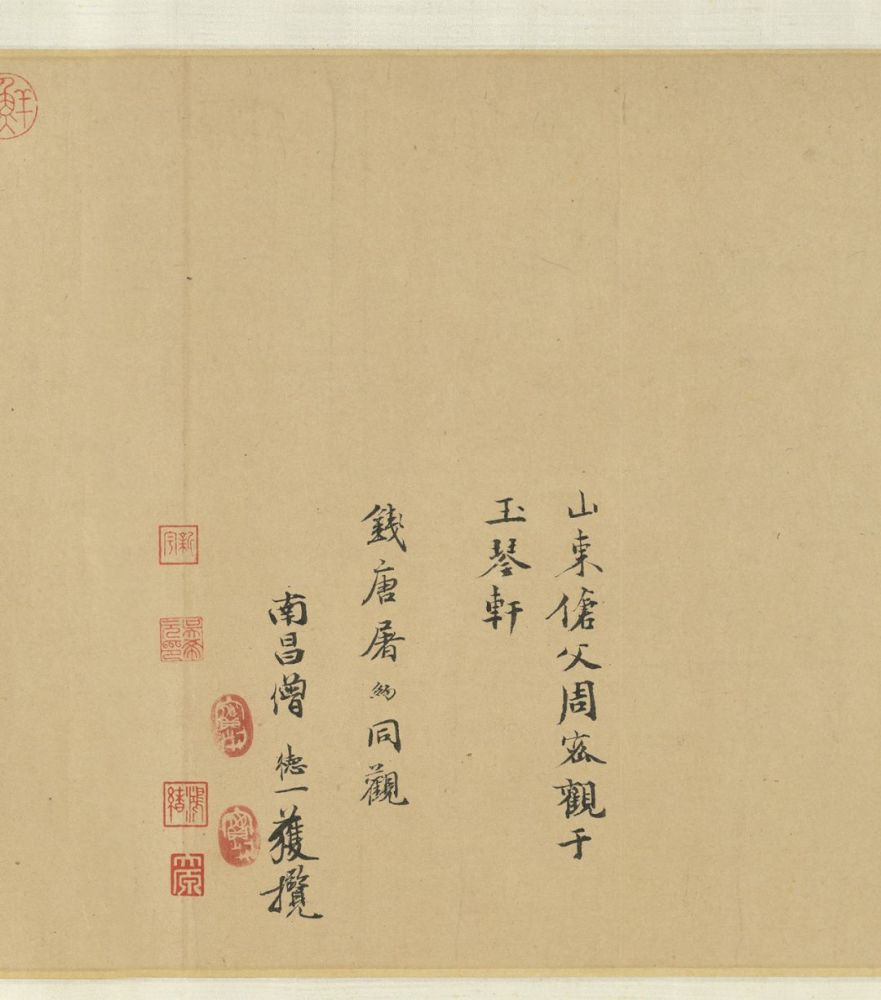 山東傖父周密觀于
玉琴軒
錢唐屠 同觀
南昌僧德一獲攬